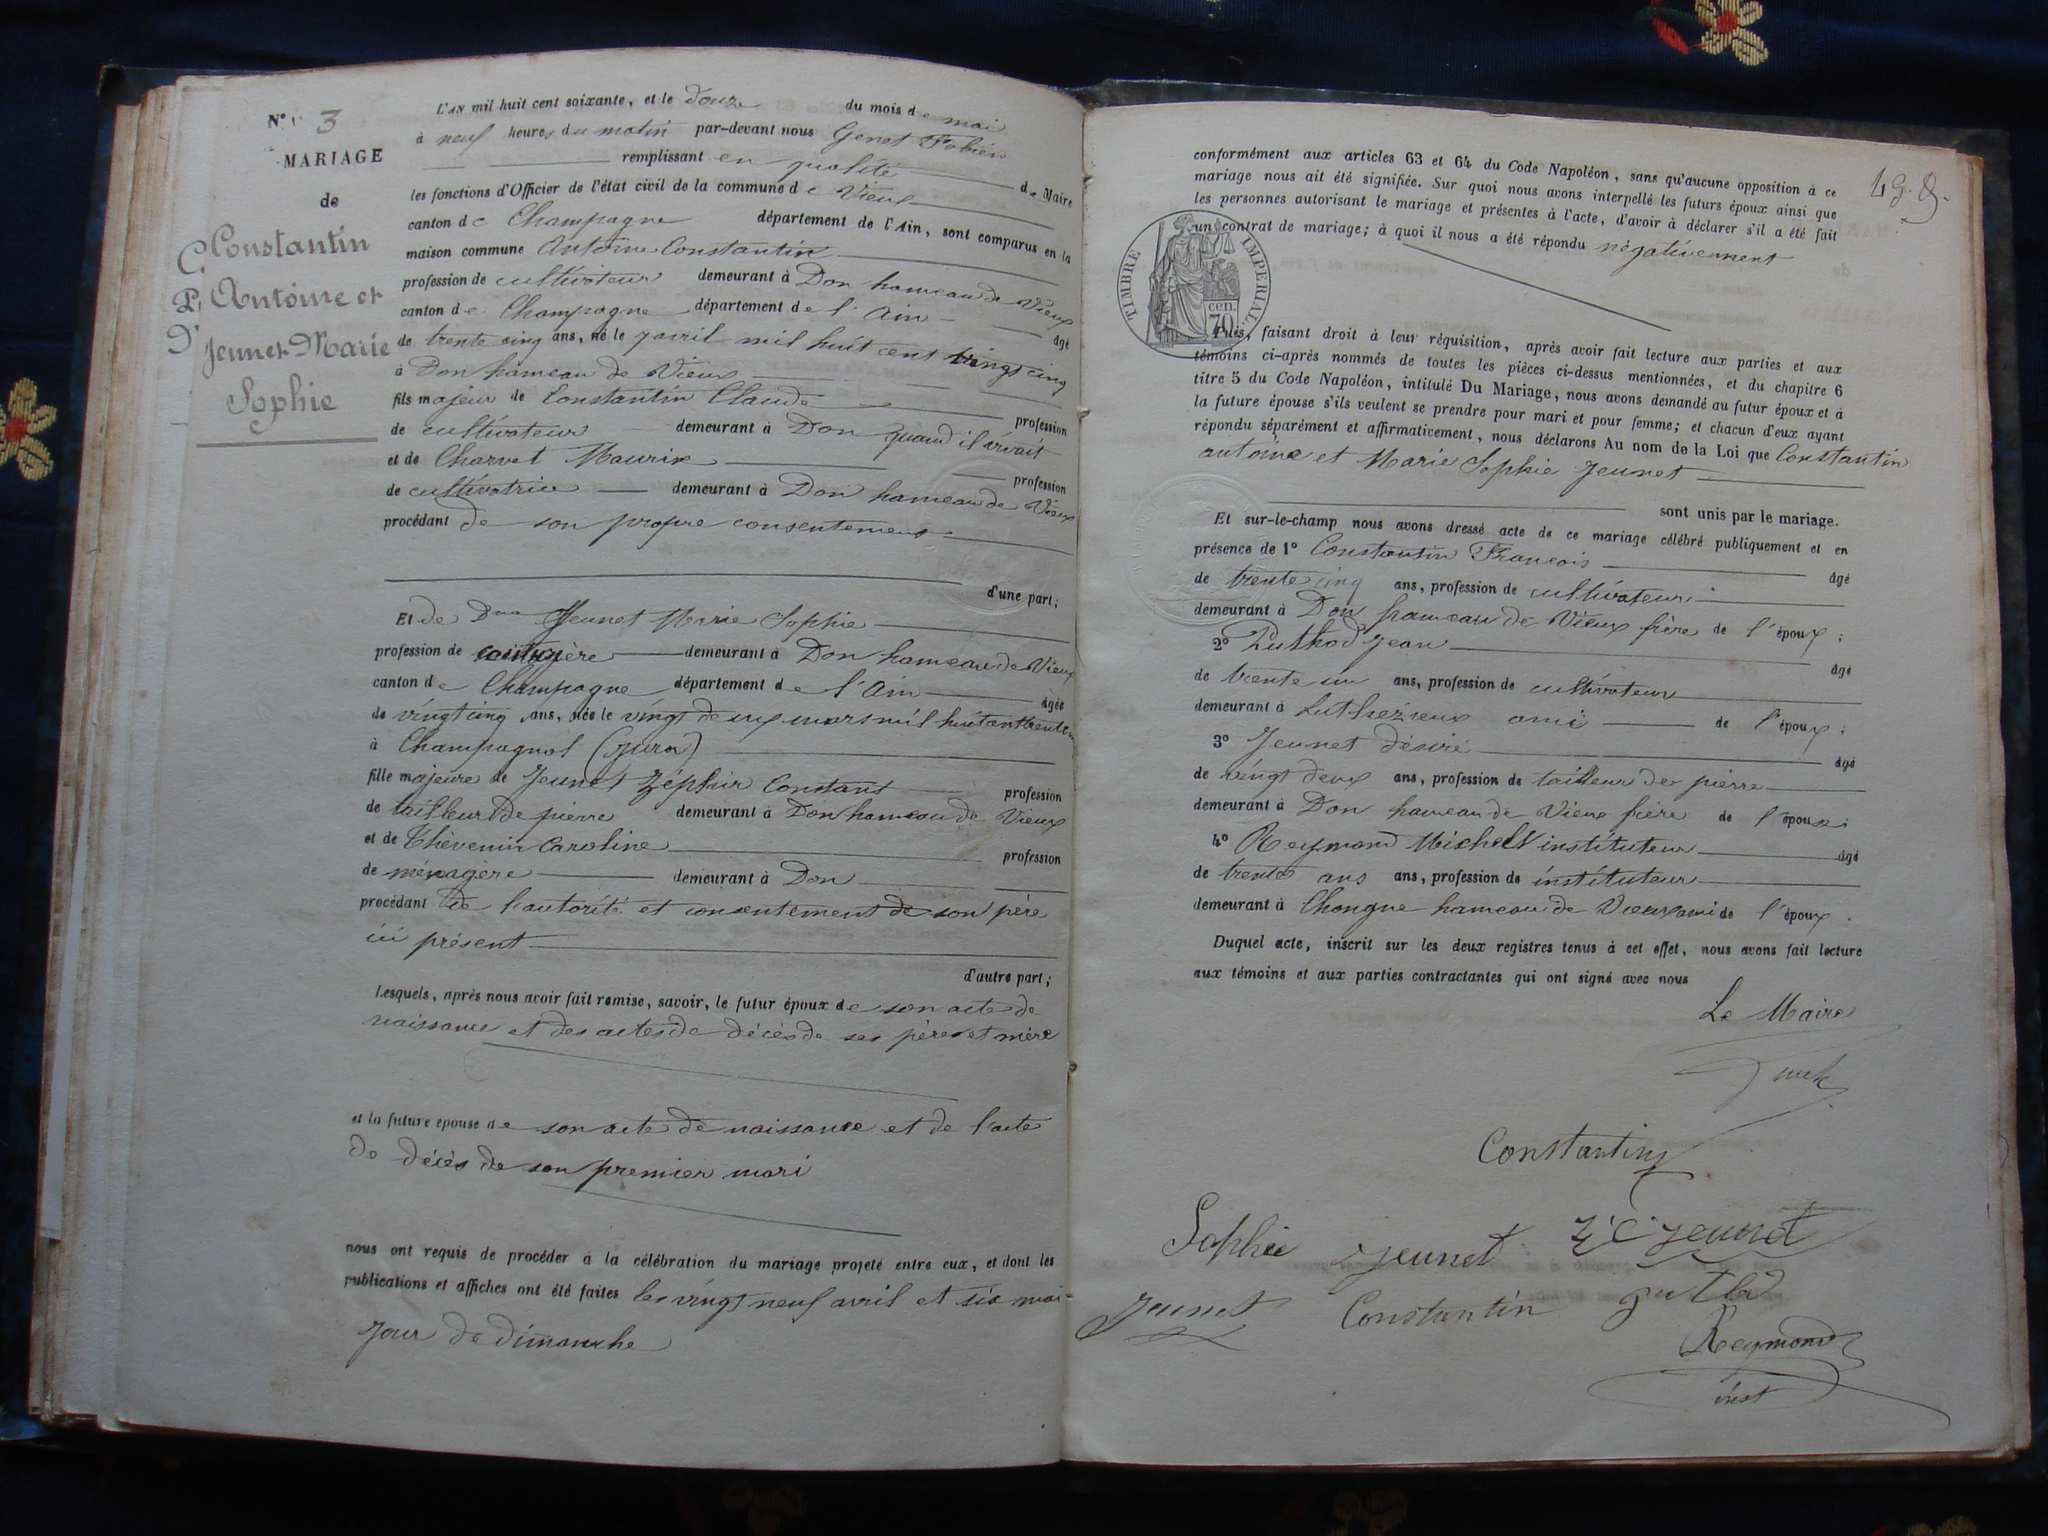 N° 3
MARIAGE
de
Constantin
Antoine et
Jeunet Marie
Sophie
L'AN mil huit cent soixante, et le douze du mois de mai
à neuf heures du matin par-devant nous Genet Fabien
remplissant en qualité de Maire
les fonctions d'Officier de l'état civil de la commune de Vieux
canton de Champagne département de l'Ain, sont comparus en la
maison commune Antoine Constantin
profession de cultivateur demeurant à Don hameau de Vieux
canton de Champagne département de l'Ain âgé
de trente cinq ans, né le 7 avril mil huit cent vingt cinq
à Don hameau de Vieux
fils majeur de Constantin Claude profession
de cultivateur demeurant à Don quand il vivait
et de Charvet Maurix profession
de cultivatrice demeurant à Don hameau de Vieux
procédant de son propre consentement
d'une part;
Et de Dme Jeunet Marie Sophie
profession de demeurant à Don hameau de Vieux
canton de Champagne département de l'Ain âgée
de vingt cinq ans, née le vingt deux mars mil huit cent trente
à Champagnol (Jura)
fille majeure de Jeunet Zéphir Constant profession
de tailleur de pierre demeurant à Don hameau de Vieux
et de Thévenin Caroline profession
de ménagère demeurant à Don
procédant de l'autorité et consentement de son père
ici présent
d'autre part;
Lesquels, après nous avoir fait remise, savoir, le futur époux de son acte de
naissance et des actes de décès de ses père et mère
et la future épouse de son acte de naissance et de l'acte
de décès de son premier mari
nous ont requis de procéder à la célébration du mariage projeté entre eux, et dont les
publications et affiches ont été faites les vingt neuf avril et six mai
jour de dimanche
49.
conformément aux articles 63 et 64 du Code Napoléon, sans qu'aucune opposition à ce
mariage nous ait été signifiée. Sur quoi nous avons interpellé les futurs époux ainsi que
les personnes autorisant le mariage et présentes à l'acte, d'avoir à déclarer s'il a été fait
un contrat de mariage; à quoi il nous a été répondu négativement
TIMBRE IMPERIAL
70 cen.
Puis, faisant droit à leur réquisition, après avoir fait lecture aux parties et aux
témoins ci-après nommés de toutes les pièces ci-dessus mentionnées, et du chapitre 6
titre 5 du Code Napoléon, intitulé Du Mariage, nous avons demandé au futur époux et à
la future épouse s'ils veulent se prendre pour mari et pour femme; et chacun d'eux ayant
répondu séparément et affirmativement, nous déclarons Au nom de la Loi que Constantin
antoine et Marie Sophie Jeunet
sont unis par le mariage.
Et sur-le-champ nous avons dressé acte de ce mariage célébré publiquement et en
présence de 1° Constantin François âgé
de trente cinq ans, profession de cultivateur
demeurant à Don hameau de Vieux frère de l'époux;
2° Puthod Jean âgé
de trente un ans, profession de cultivateur
demeurant à Luthezieux ami de l'époux;
3° Jeunet désiré âgé
de vingt deux ans, profession de tailleur de pierre
demeurant à Don hameau de Vieux frère de l'épouse
4° Reymond Michel instituteur âgé
de trente ans ans, profession de instituteur
demeurant à Chongne hameau de Vieux ami de l'époux.
Duquel acte, inscrit sur les deux registres tenus à cet effet, nous avons fait lecture
aux témoins et aux parties contractantes qui ont signé avec nous
Le Maire
Constantin
Sophie Jeunet Z C Jeunet
Jeunet Constantin
Reymond
inst